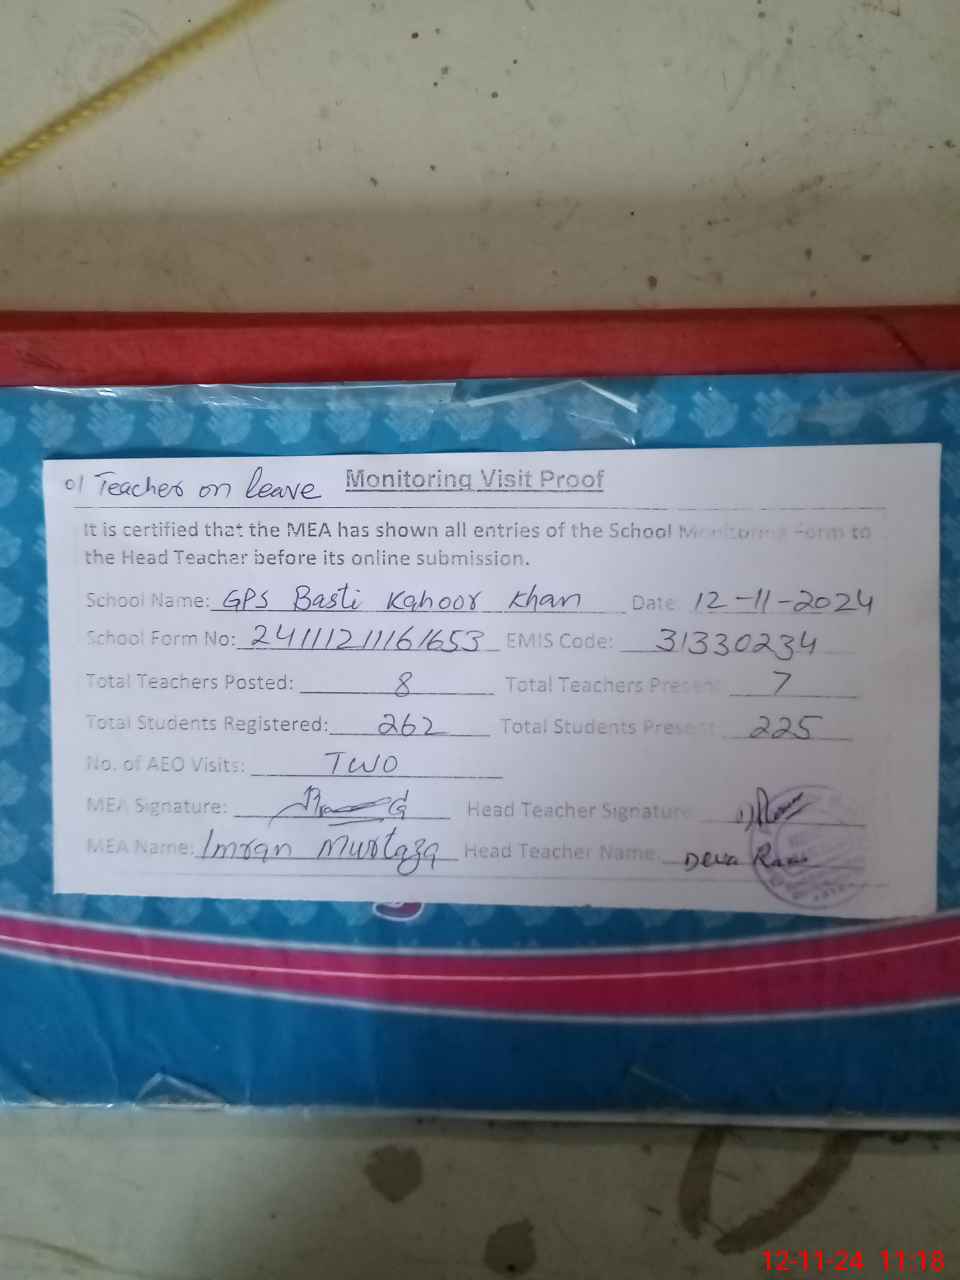 01 Teacher on leave Monitoring Visit Proof
It is certified that the MEA has shown all entries of the School Monitoring Form to
the Head Teacher before its online submission.
School Name: GPS Basti Kahoor Khan Date: 12-11-2024
School Form No: 24111211161653 EMIS Code: 31330234
Total Teachers Posted: 8 Total Teachers Present 7
Total Students Registered: 262 Total Students Present 225
No. of AEO Visits: TWO
MEA Signature: Head Teacher Signature
MEA Name: Imran Murtaza Head Teacher Name: Deva Ram
12-11-24 11:18